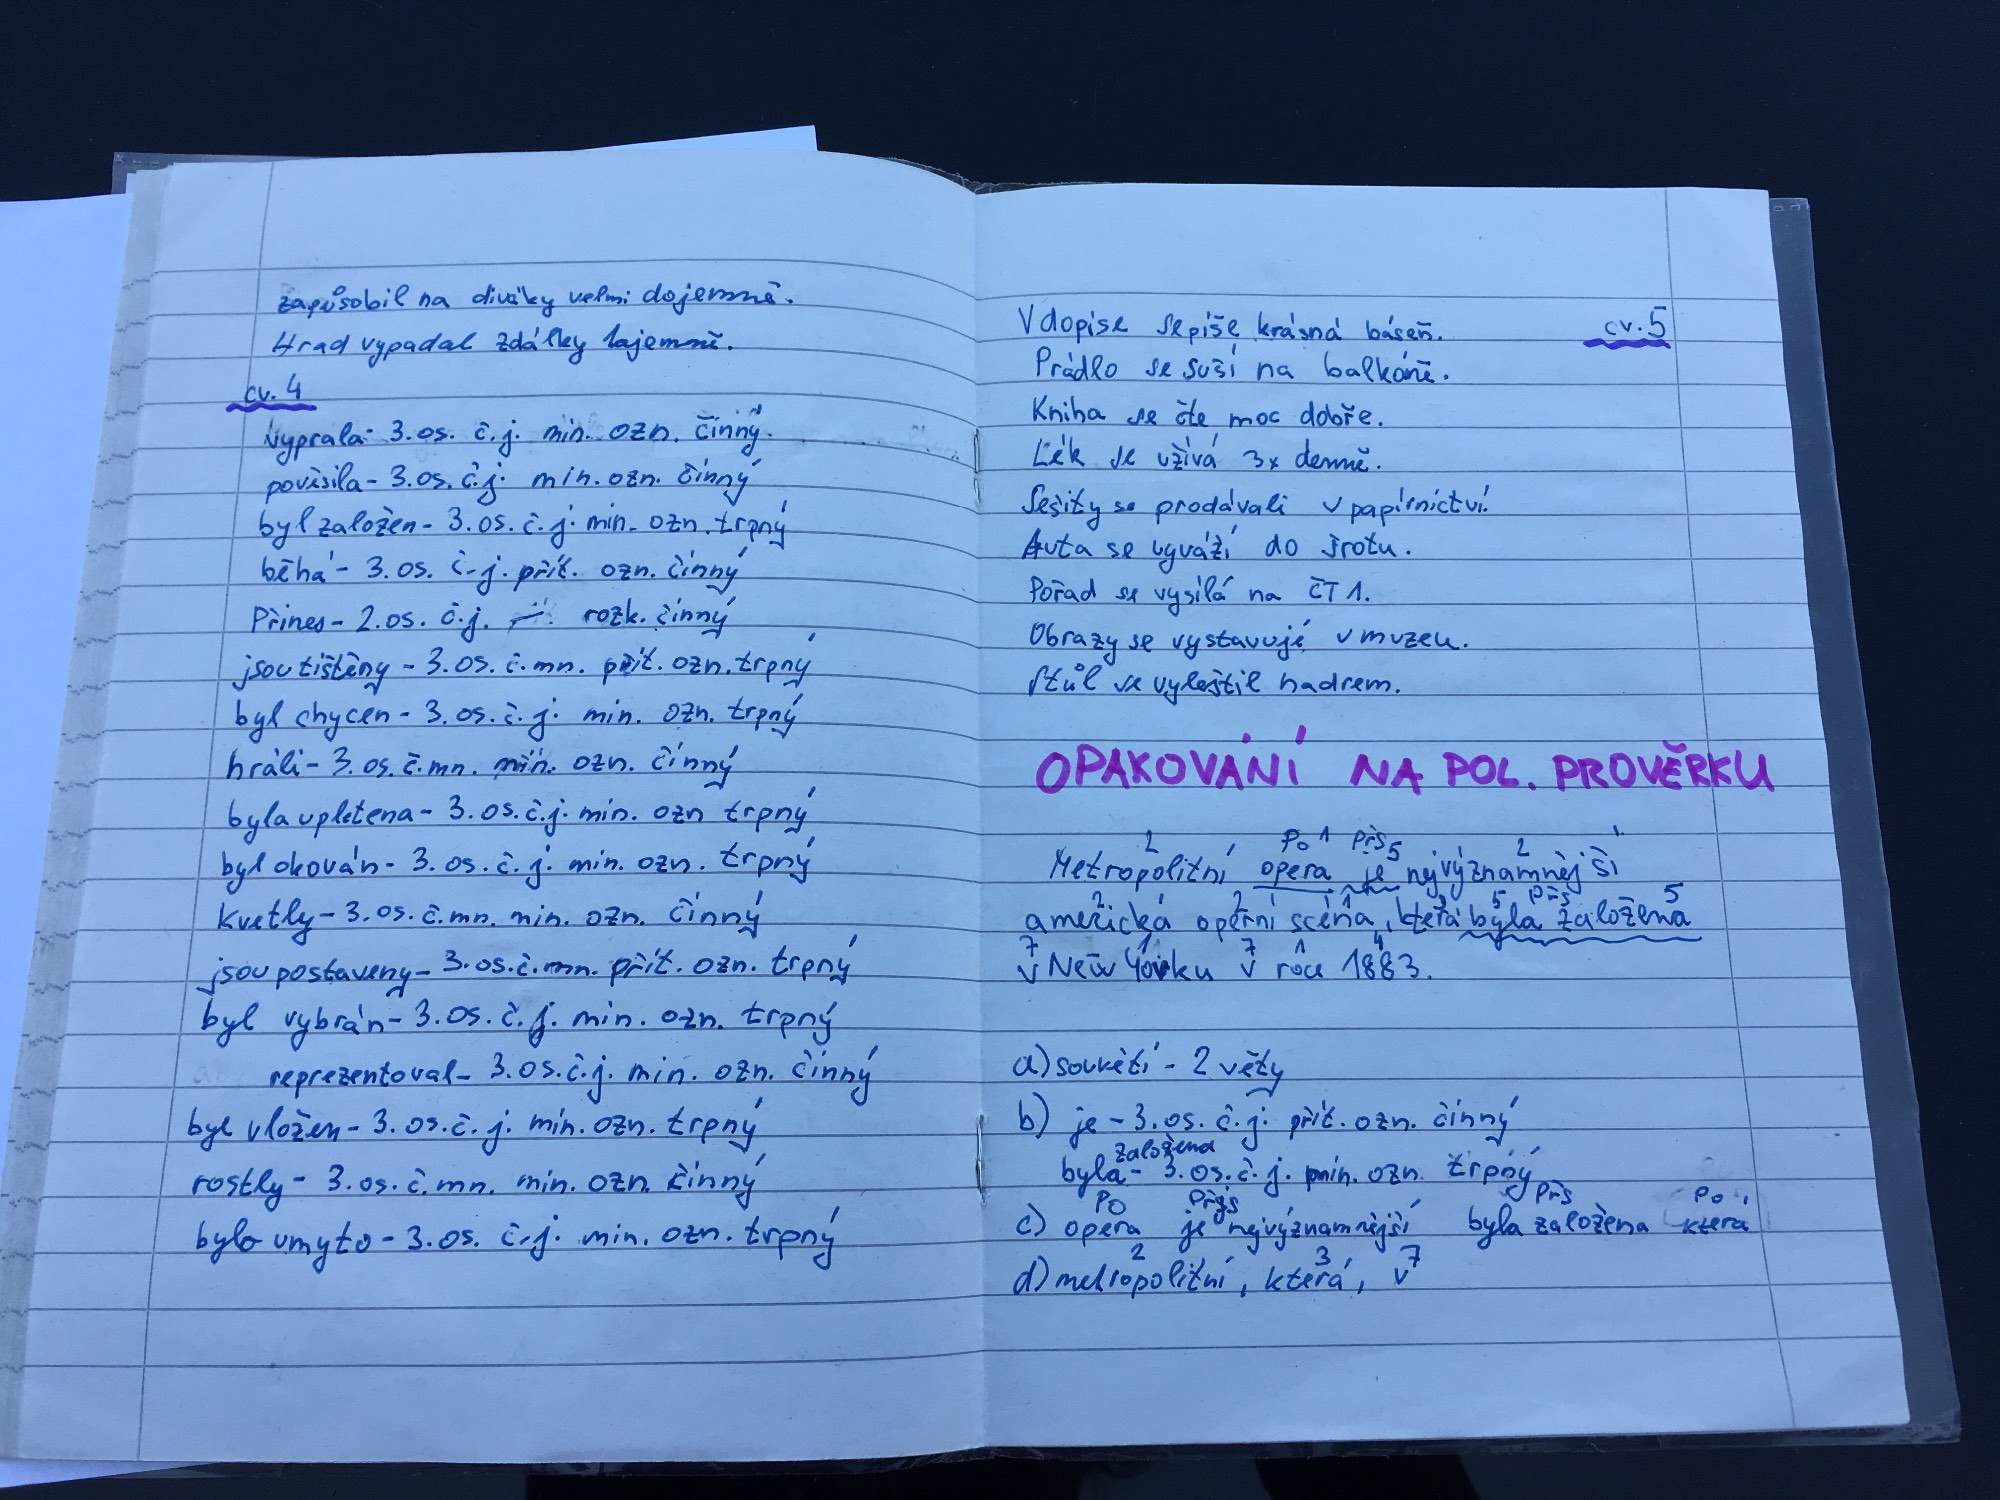 zapůsobil na diváky velmi dojemně.
Hrad vypadal zdálky tajemně.
cv. 4
vyprala- 3. os. č. j. min. ozn. činný.
pověsila- 3. os. č. j. min. ozn. činný
byl založen- 3. os. č. j. min. ozn. trpný
běhá- 3. os. č. j. přít. ozn. činný
Přines- 2. os. č. j. rozk. činný
jsou tištěny- 3. os. č. mn. přít. ozn. trpný
byl chycen- 3. os. č. j. min. ozn. trpný
hráli- 3. os. č. mn. min. ozn. činný
byla upletena- 3. os. č. j. min. ozn trpný
byl okován- 3. os. č. j. min. ozn. trpný
kvetly- 3. os. č. mn. min. ozn. činný
jsou postaveny- 3. os. č. mn. přít. ozn. trpný
byl vybrán- 3. os. č. j. min. ozn. trpný
reprezentoval- 3. os. č. j. min. ozn. činný
byl vložen- 3. os. č. j. min. ozn. trpný
rostly- 3. os. č. mn. min. ozn. činný
bylo umyto- 3. os. č. j. min. ozn. trpný
cv. 5
V dopise se píše krásná báseň.
Prádlo se suší na balkóně.
Kniha se čte moc dobře.
Lék se užívá 3x denně.
Sešity se prodávali v papírnictví.
Auta se vyváží do šrotu.
Pořad se vysílá na ČT 1.
Obrazy se vystavují v muzeu.
Stůl se vyleštil hadrem.
OPAKOVÁNÍ NA POL. PROVĚRKU
2 Po 1 Přs 5 2
Metropolitní opera je nejvýznamnější
2 2 1 3 5 Přs 5
americká operní scéna, která byla založena
7 1 7 1 4
v New Yorku v roce 1883.
a) souvětí - 2 věty
b) je - 3. os. č. j. přít. ozn. činný
založena
byla- 3. os. č. j. min. ozn. trpný
Po Přs Přs Po
c) opera je nejvýznamnější byla založena která
2 3 7
d) metropolitní, která, v